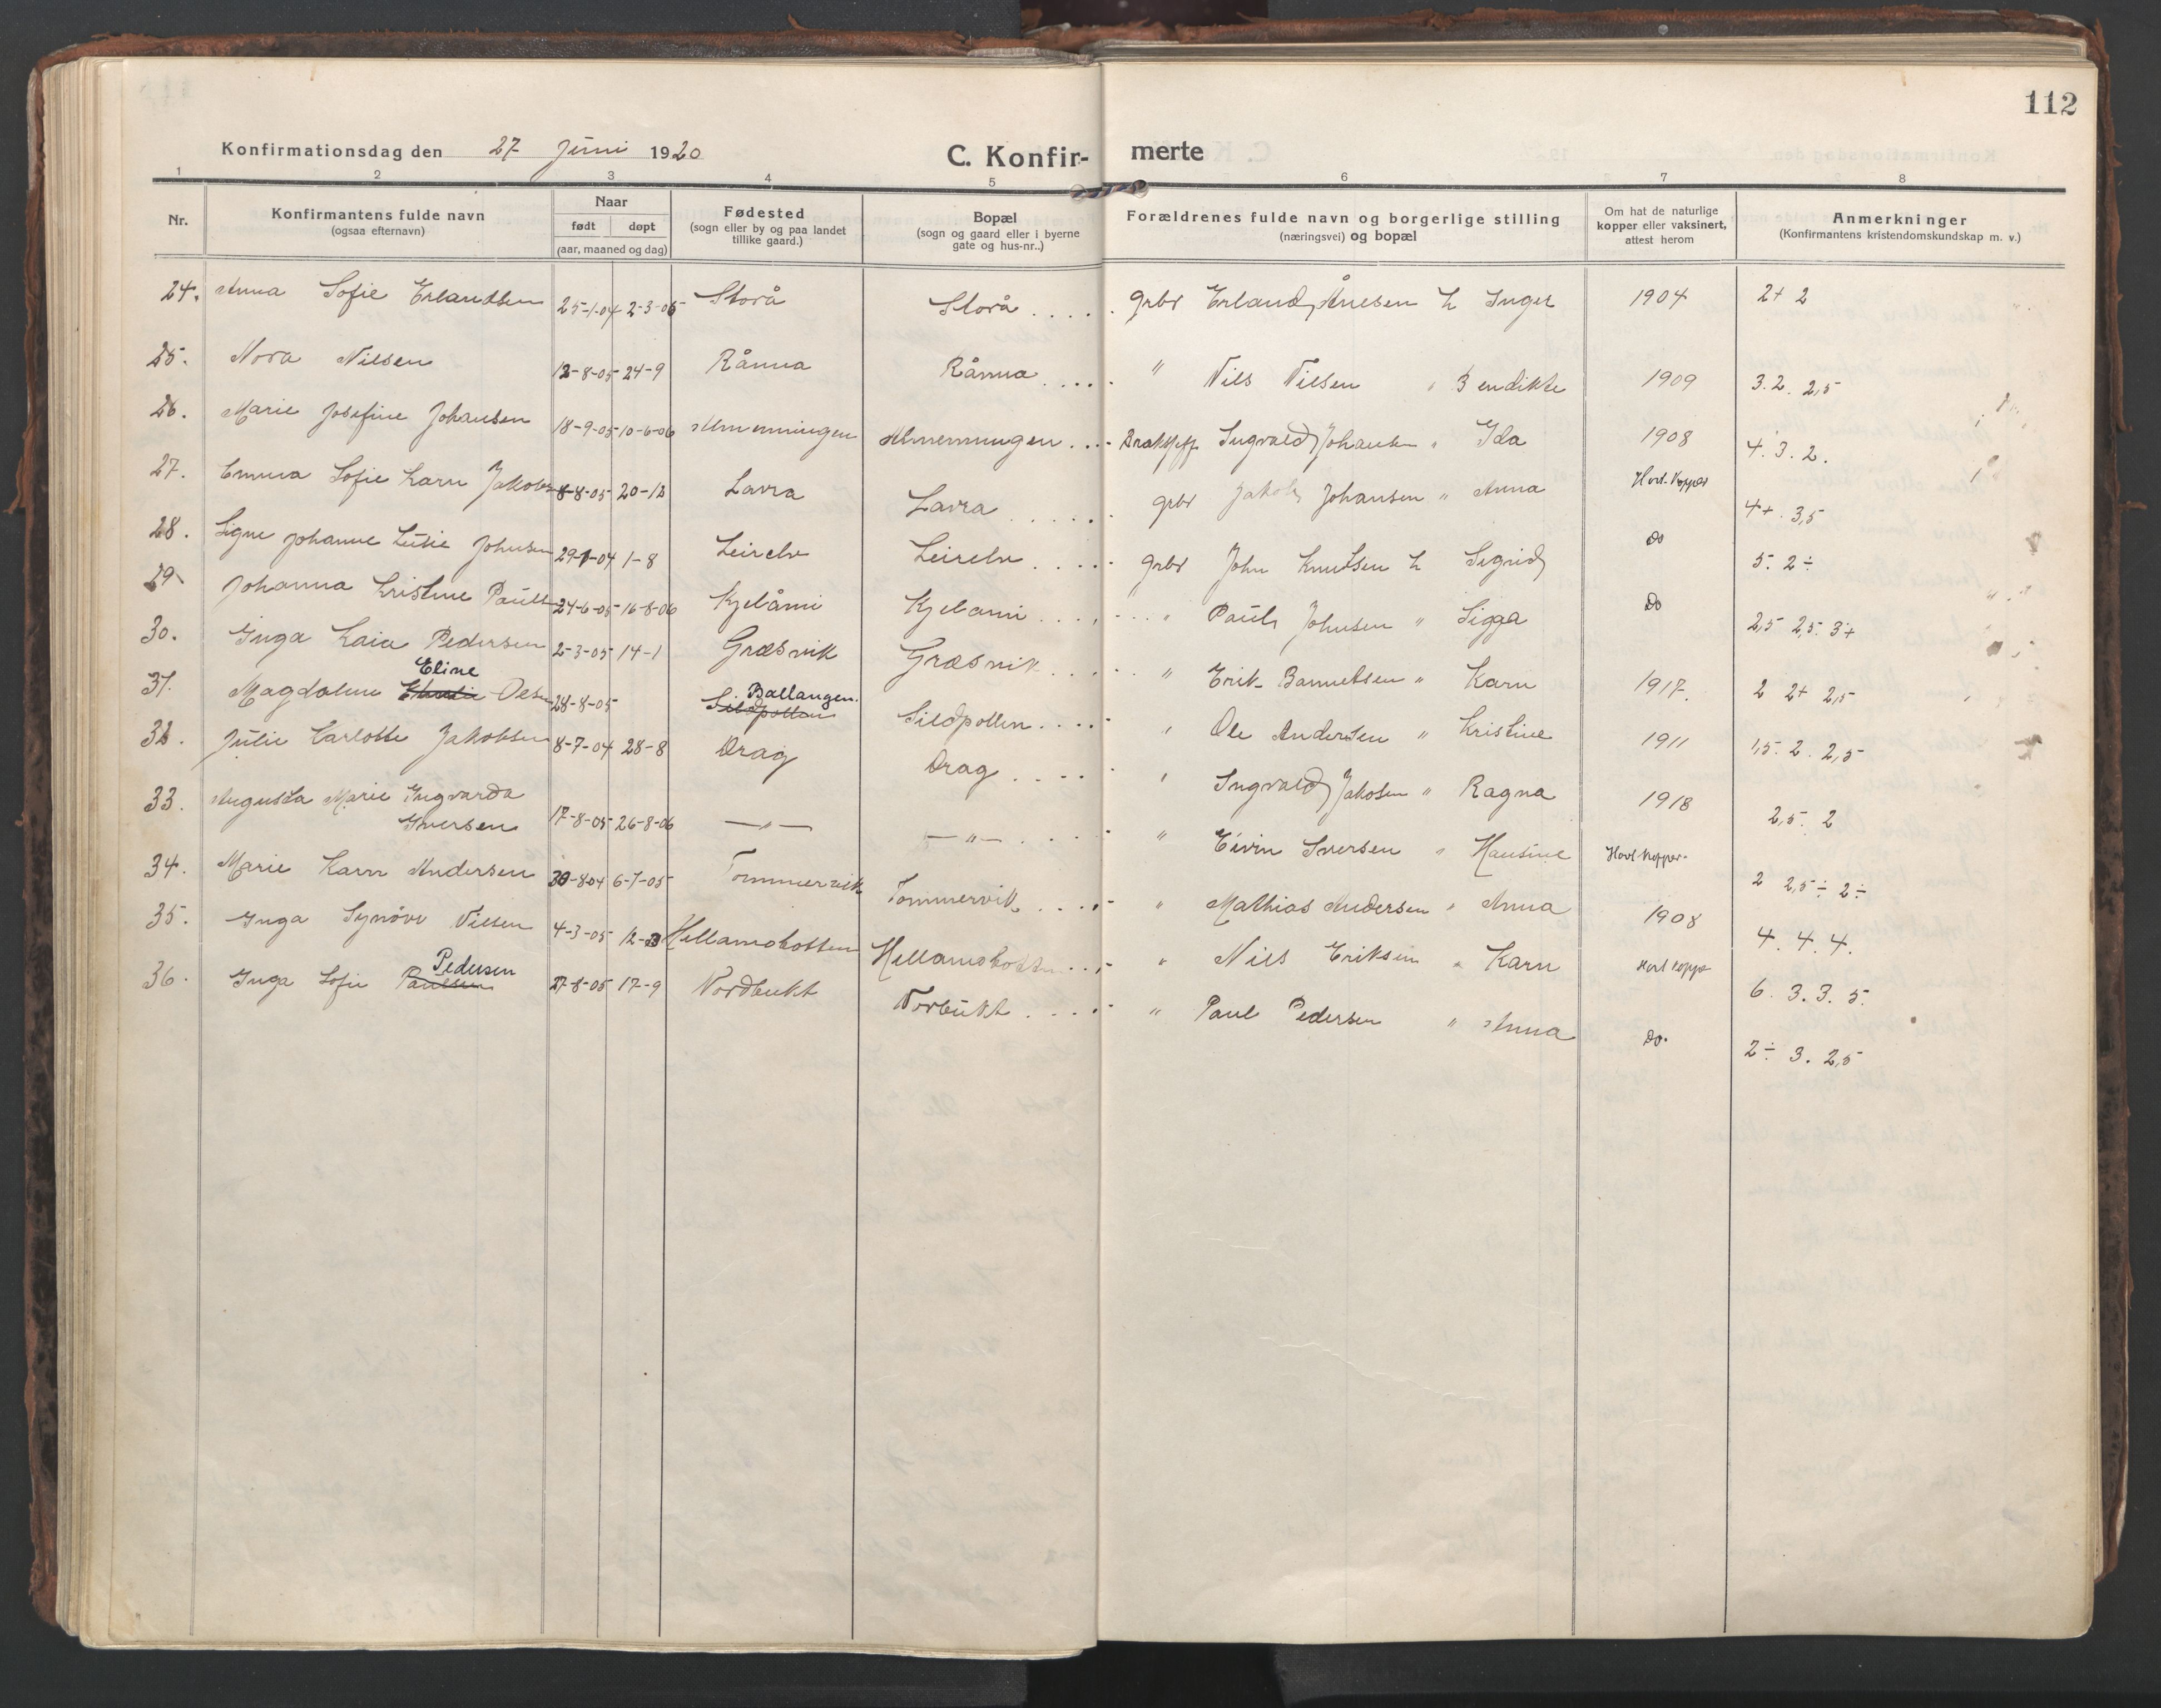 112
Konfirmationsdag den 27 Juni 1920
C. Konfir- merte
1 2 3 4 5 6 7 8
Nr. Konfirmantens fulde navn (ogsaa efternavn) Naar født døpt (aar, maaned og dag) Fødested (sogn eller by og paa landet tillike gaard.) Bopæl (sogn og gaard eller i byerne gate og hus-nr..) Forældrenes fulde navn og borgerlige stilling (næringsvei) og bopæl Om hat de naturlige kopper eller vaksinert, attest herom Anmerkninger (Konfirmantens kristendomskundskap m. v.)
24. Anna Sofie Erlandsen 25-1-04 2-3-05 Storå Storå .... grbr Erland Ånesen h Inger 1904 2+ 2
25. Nora Nilsen 12-8-05 24-9 Rånna Rånna .... " Nils Nilsen " Bendikte 1909 3. 2. 2,5
26. Marie Josefine Johansen 18-9-05 10-6-06 Almenningen Almenningen ... Ingvald Johansen " Ida 1908 4. 3. 2.
27. Emma Sofie Karn Jakobs 8-8-05 20-12 Lavra Lavra ..... grbr Jakob Johansen " Anna Havt Kopper 4+. 3,5
28. Signe Johanne Lusie Johnsen 29-1-04 1-8 Leirelv Leirelv .... grbr John Knutsen h Sigrid Do 5. 2÷
29. Johanna Kristine Pauls 24-6-05 16-8-06 Kjelåmi Kjelami .... " Paul Johnsen " Sigga Do 2,5 2,5. 3+
30. Inga Kaia Pedersen 2-3-05 14-1 Græsvik Græsvik .... " Erik Bannetsen " Karn 1917. 2 2+ 2,5
Eline Ballangen.
31. Magdalene Olsen 28-8-05 Sildpollen Sildpollen .... " Ole Andersen " Kristine 1911 1,5. 2. 2,5
32. Julie Karlotte Jakobsen 8-7-04 28-8 Drag Drag .... " Ingvald Jakobsen " Ragna 1918 2,5. 2
33. Augusta Marie Ingvarda
Iversen 17-8-05 26-8-06 —"— —"— .... " Eivin Iversen " Hansine Havt kopper. 2 2,5÷ 2÷
34. Marie Karn Andersen 30-8-04 6-7-05 Tommervik Tommervik .... " Mathias Andersen " Anna 1908 4. 4. 4.
35. Inga Synöve Nilsen 4-3-05 12-3 Hellamobotten Hellamobotten ... " Nils Eriksen " Karn Havt koppe 6. 3. 3. 5.
Pedersen
36. Inga Sofie Paulsen 27-8-05 17-9 Nordbukt Norbukt .... " Paul Pedersen " Anna Do. 2÷ 3. 2,5